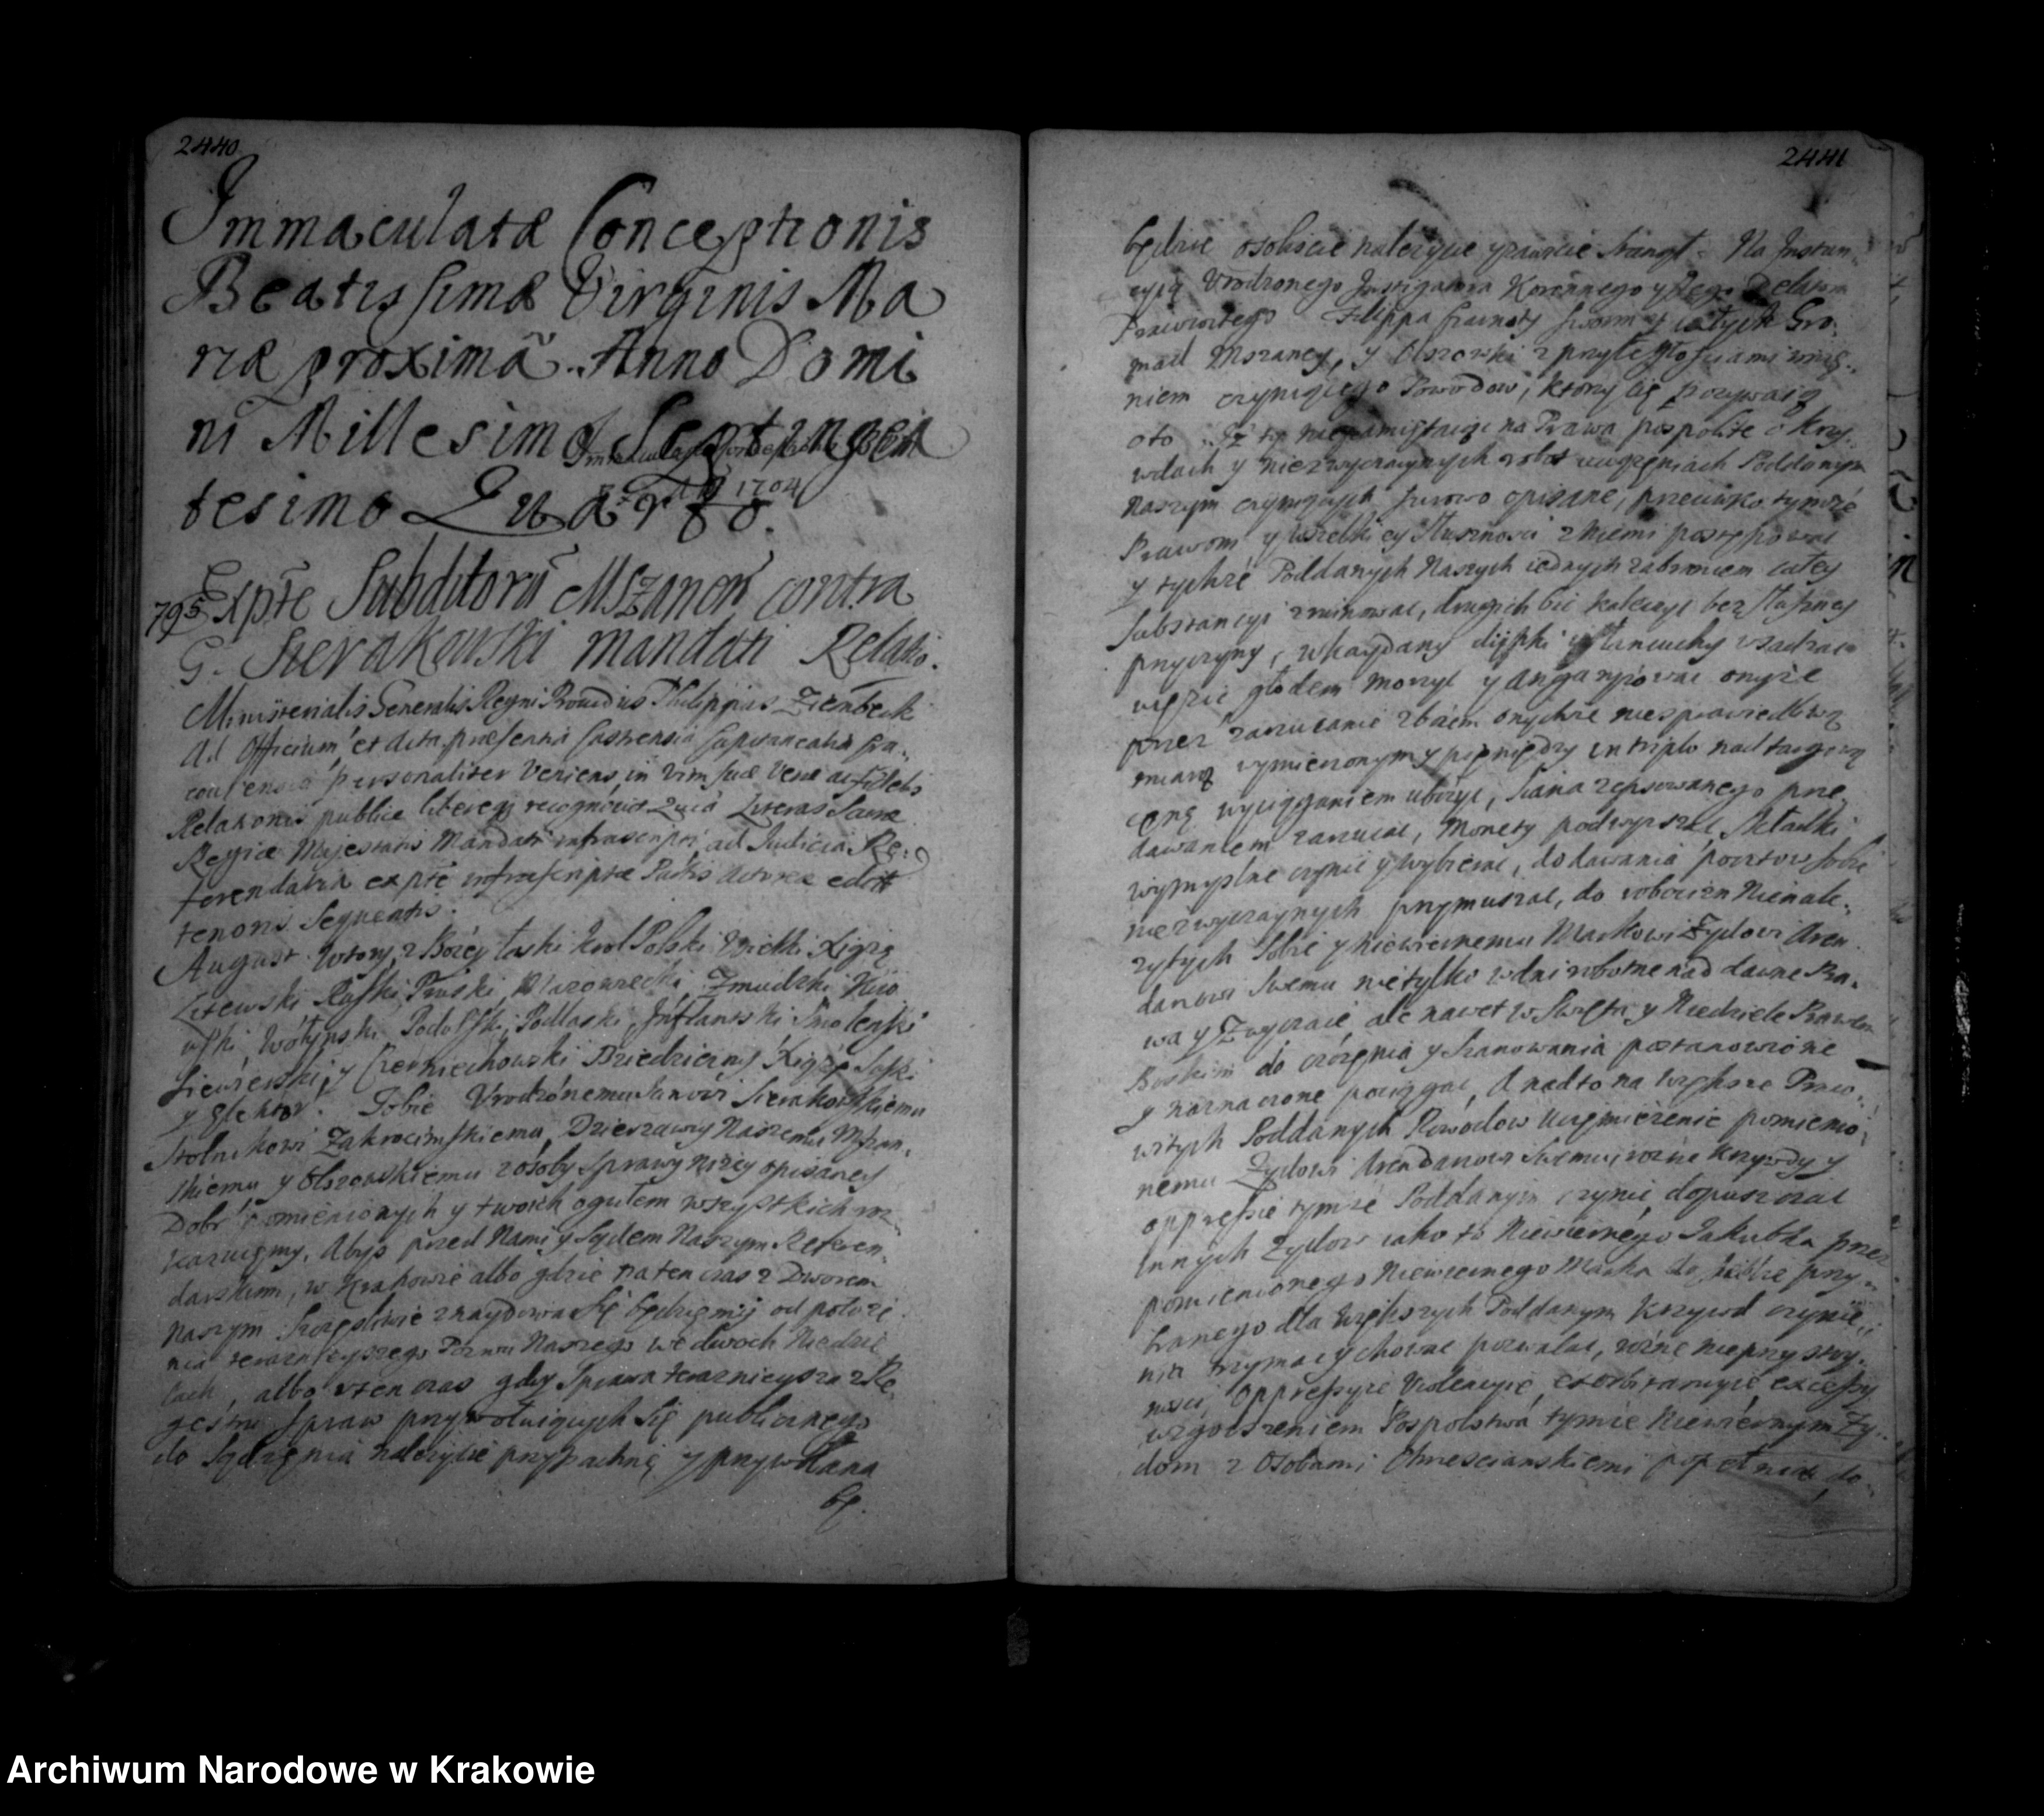 2440
Immaculatæ Conceptionis
Beatissimæ Virginis Ma
riæ proximã. Anno Domi
ni Millesimo Septingen
tesimo Quarto.
1704
795
Exptẽ Subditorũ Mszanen contra
G. Sierakowski mandati Relatio.
Ministerialis Generalis Regni Providus Philippus Ziembecki
Ad Officium et Acta præsentia Castrensia Capitanealia Cra
coviensia personaliter veniens, in vim suæ veræ ac fidelis
Relationis publice libereqz recognovit Quia Literas Sacræ
Regiæ Majestatis Mandati infrascripti ad Iudicia Re
ferendaria ex ptẽ infrascriptæ Partis Actoreæ
tenoris Sequentis.
August Wtory z Bożey łaski Krol Polski Wielki Xiąże
Litewski Ruski, Pruski, Mazowiecki, Zmudzki Kiio
wski, Wołynski, Podolski, Podlaski, Inflantski Smolenski
Siewierski, y Czerniechowski Dziedziczny Xiąże Saski
y Elektor. Tobie Urodzonemu Sierakowskiemu
Stolnikowi Zakroczimskiemu, Dzierzawcy Naszemu Mszan
skiemu y Olszowskiemu z osoby Sprawy niżey opisaney
Dobr pomienionych y twoich ogułem wszystkich roz
kazuięmy, Abyś przed Nami y Sądem Naszym Referen
darskim, w Krakowie albo gdzie na ten czas z Dworem
Naszym Szczęsliwie znaydować się będzięmy od położe
nia teraznieyszego Pozwu Naszego we dwoch Niedzie
lach, albo w ten czas gdy Sprawa teraznieysza z Re
gestru Spraw przywołuiących się publicznego
do Sądzęnia należycie przypadnie y przywołana
bę.
2441
będzie osobiscie należycie y prawnie stanął. Na Instan
cyią Urodzonego Instigatora Koronnego y Iego Delatora
Pracowitego Filippa y całych Gro
mad Mszaney, y Olszowki z przyległosciami imię
niem czyniącego Powodow, ktorzy Cię pozywaią
oto Iż ty niepamiętaiąc na Prawa pospolite o krzy
wdach y niezwyczaynych robot uciązęniach Poddanym
naszym czyniących surowo opisane, przeciwko tymże
Prawom y wszelkiey słusznosci z niemi postępować
y tychże Poddanych Naszych iednych zabraniem całey
Substancyi zruinować, drugich bić kaleczyć bez słuszney
przyczyny, w kaydany dybki y łancuchy wsadzać
więzić głodem morzyć y angaryiować onyże
przez zarzucanie zbożem onychże niesprawiedliwą
miarą wymierzonym y pięniędzy in triplo nad targową
cęnę wyciąganiem ubożyć, Siana zepsowanego prze
dawaniem zarzucać, Monety podwyszać składki
wymyslne czynić y wybierać, do dawania poczt sobie
niezwyczaynych przymuszać, do robocizn Nienale
żytych sobie y niewiernemu Markowi Zydowi Aren
darzowi Swemu nietylko w dni robotne nad dawne Pra
wa y Zwyczaie, ale nawet w Swięta y Niedziele Prawem
Boskim do czczęnia y szanowania postanowione
y naznaczone pociągać, A nadto na większe Praco
witych Poddanych Powodow uciemiężenie pomienio
nemu Zydowi Arendarzowi Swemu, rożne krzywdy y
oppresie tymże Poddanym czynić dopuszczać
Innych Zydow iako to Niewiernego Iakubka przez
pomienionego Niewiernego Marka do siebie przy
branego dla większych Poddanym krzywd czynie
nia trzymać y chować pozwalać, rożne nieprzystoy
nosci, Oppressyie Violencyie, exorbitancyie, excessy
z zgorszeniem Pospolstwa tymże Niewiernym Zy
dom z Osobami Chrzescianskiemi popełniać do
Archiwum Narodowe w Krakowie